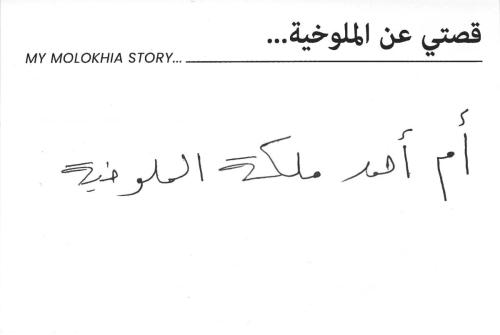 قصتي عن الملوخية...
MY MOLOKHIA STORY...
أم أحمد ملكة الملوخية